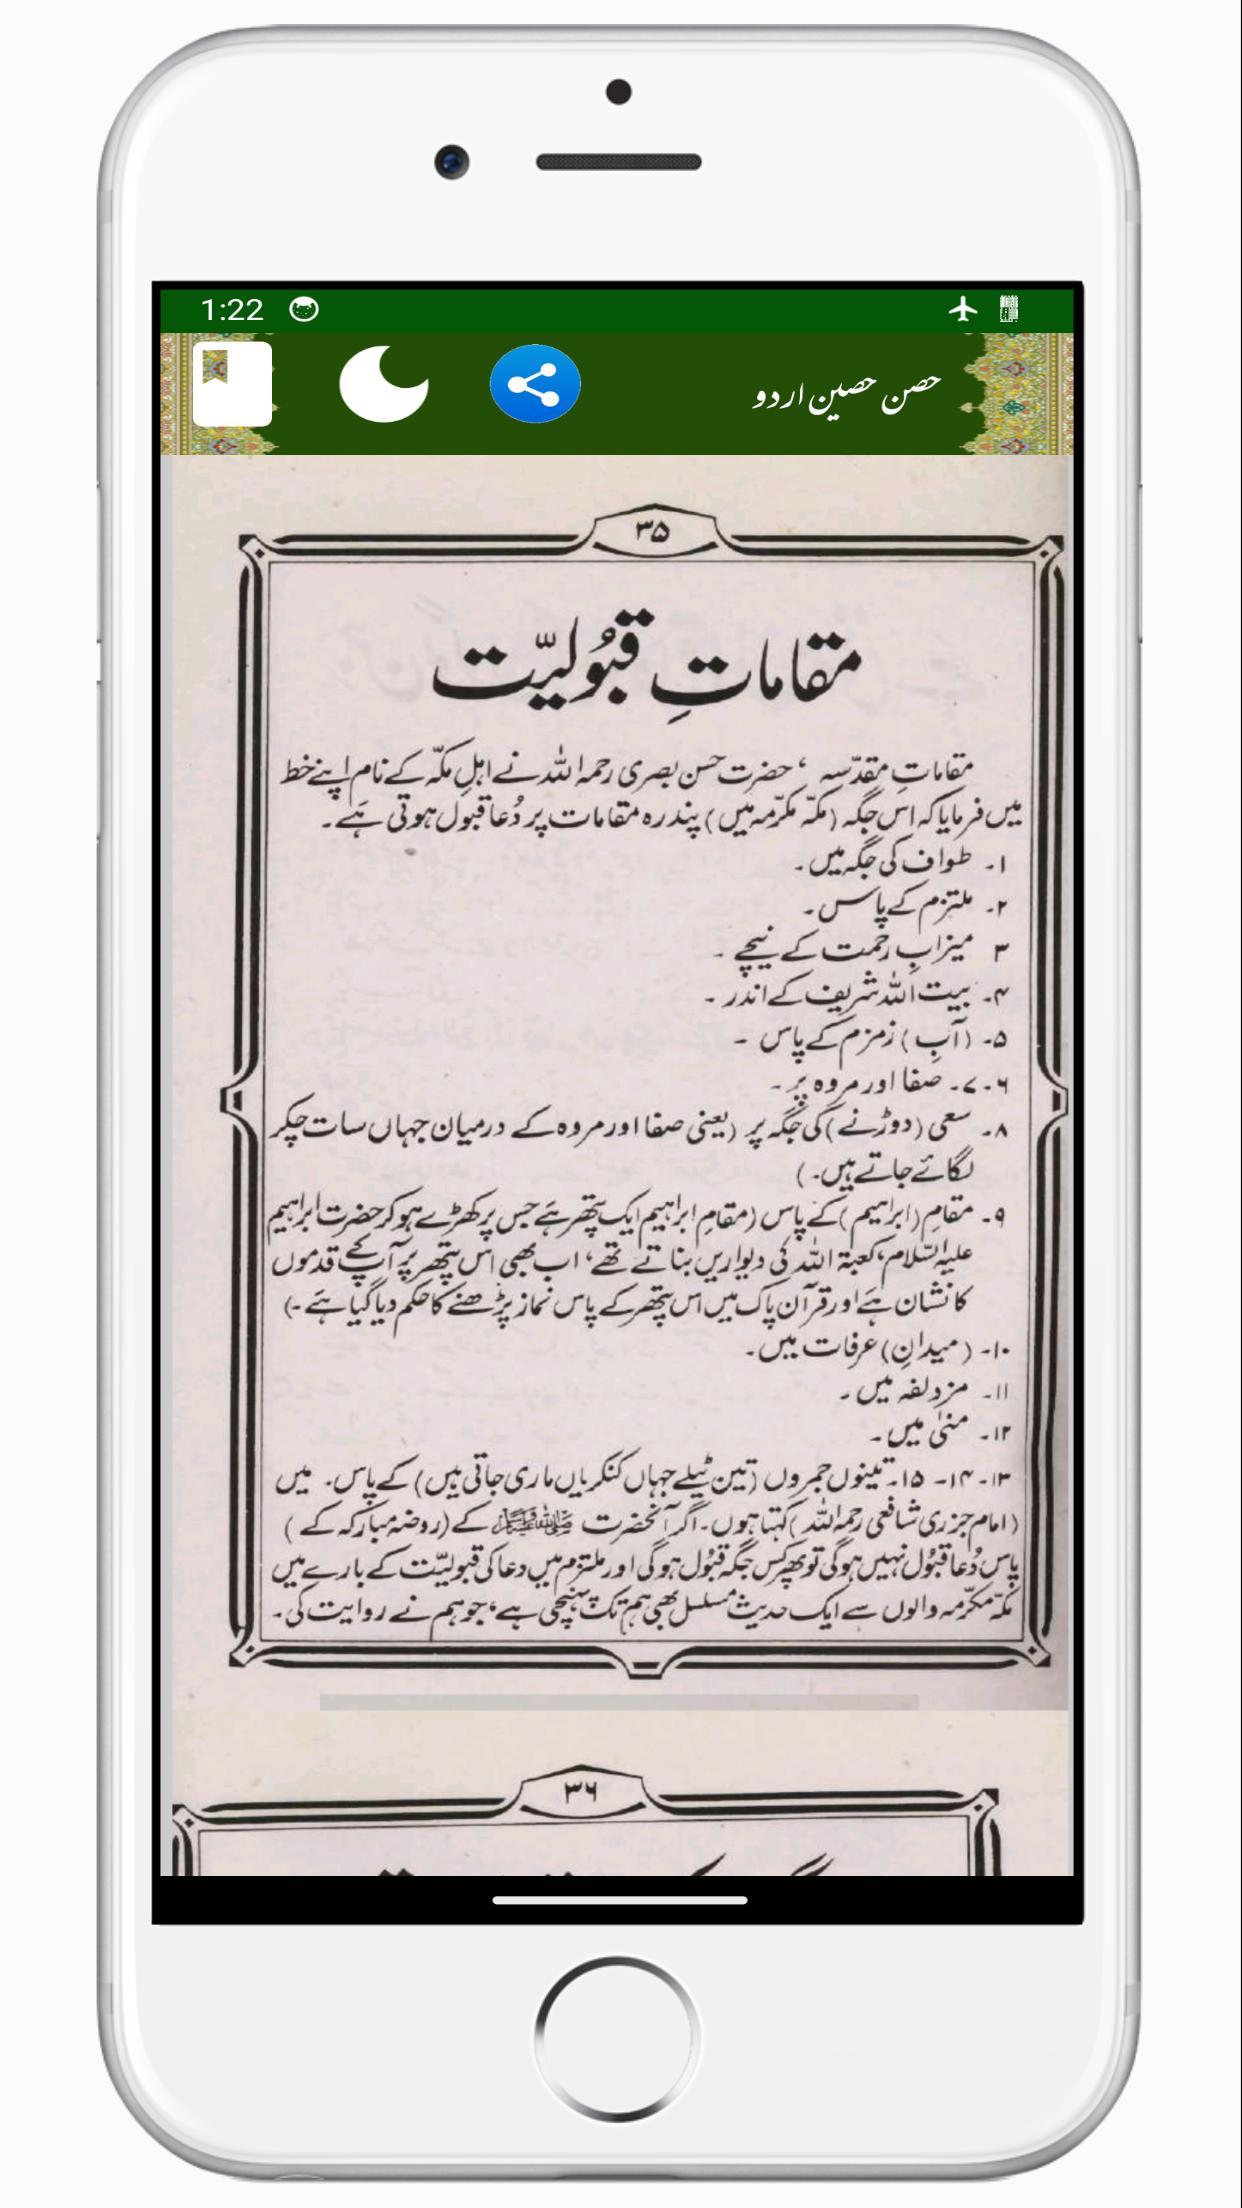 1:22
حصن حصین اردو
۳۵
مقاماتِ قبُولیّت
مقاماتِ مقدّسہ ، حضرت حسن بصری رحمہ اللہ نے اہلِ مکّہ کے نام اپنے خط
میں فرمایا کہ اس جگہ (مکّہ مکرّمہ میں) پندرہ مقامات پر دُعا قبول ہوتی ہے۔
۱۔ طواف کی جگہ میں۔
۲۔ ملتزم کے پاس۔
۳ میزابِ رحمت کے نیچے ۔
۴۔ بیت اللہ شریف کے اندر ۔
۵۔ (آبِ) زمزم کے پاس ۔
۶۔۷۔ صفا اور مروہ پر۔
۸۔ سعی (دوڑنے) کی جگہ پر (یعنی صفا اور مروہ کے درمیان جہاں سات چکر
لگائے جاتے ہیں۔)
۹۔ مقامِ (ابراہیم) کے پاس (مقامِ ابراہیم ایک پتھر ہے جس پر کھڑے ہو کر حضرت ابراہیم
علیہ السّلام، کعبۃ اللہ کی دیواریں بناتے تھے، اب بھی اس پتھر پر آپ کے قدموں
کا نشان ہے اور قرآن پاک میں اس پتھر کے پاس نماز پڑھنے کا حکم دیا گیا ہے۔)
۱۰۔ (میدانِ) عرفات میں۔
۱۱۔ مزدلفہ میں ۔
۱۲۔ منیٰ میں۔
۱۳۔ ۱۴۔ ۱۵۔ تینوں جمروں (تین ٹیلے جہاں کنکریاں ماری جاتی ہیں) کے پاس۔ میں
(امام جزری شافعی رحمہ اللہ) کہتا ہوں۔ اگر آنحضرت ﷺ کے (روضہ مبارکہ کے)
پاس دُعا قبُول نہیں ہوگی تو پھر کس جگہ قبُول ہوگی اور ملتزم میں دعا کی قبولیّت کے بارے میں
مکّہ مکرّمہ والوں سے ایک حدیث مسلسل بھی ہم تک پہنچی ہے، جو ہم نے روایت کی۔
۳۶